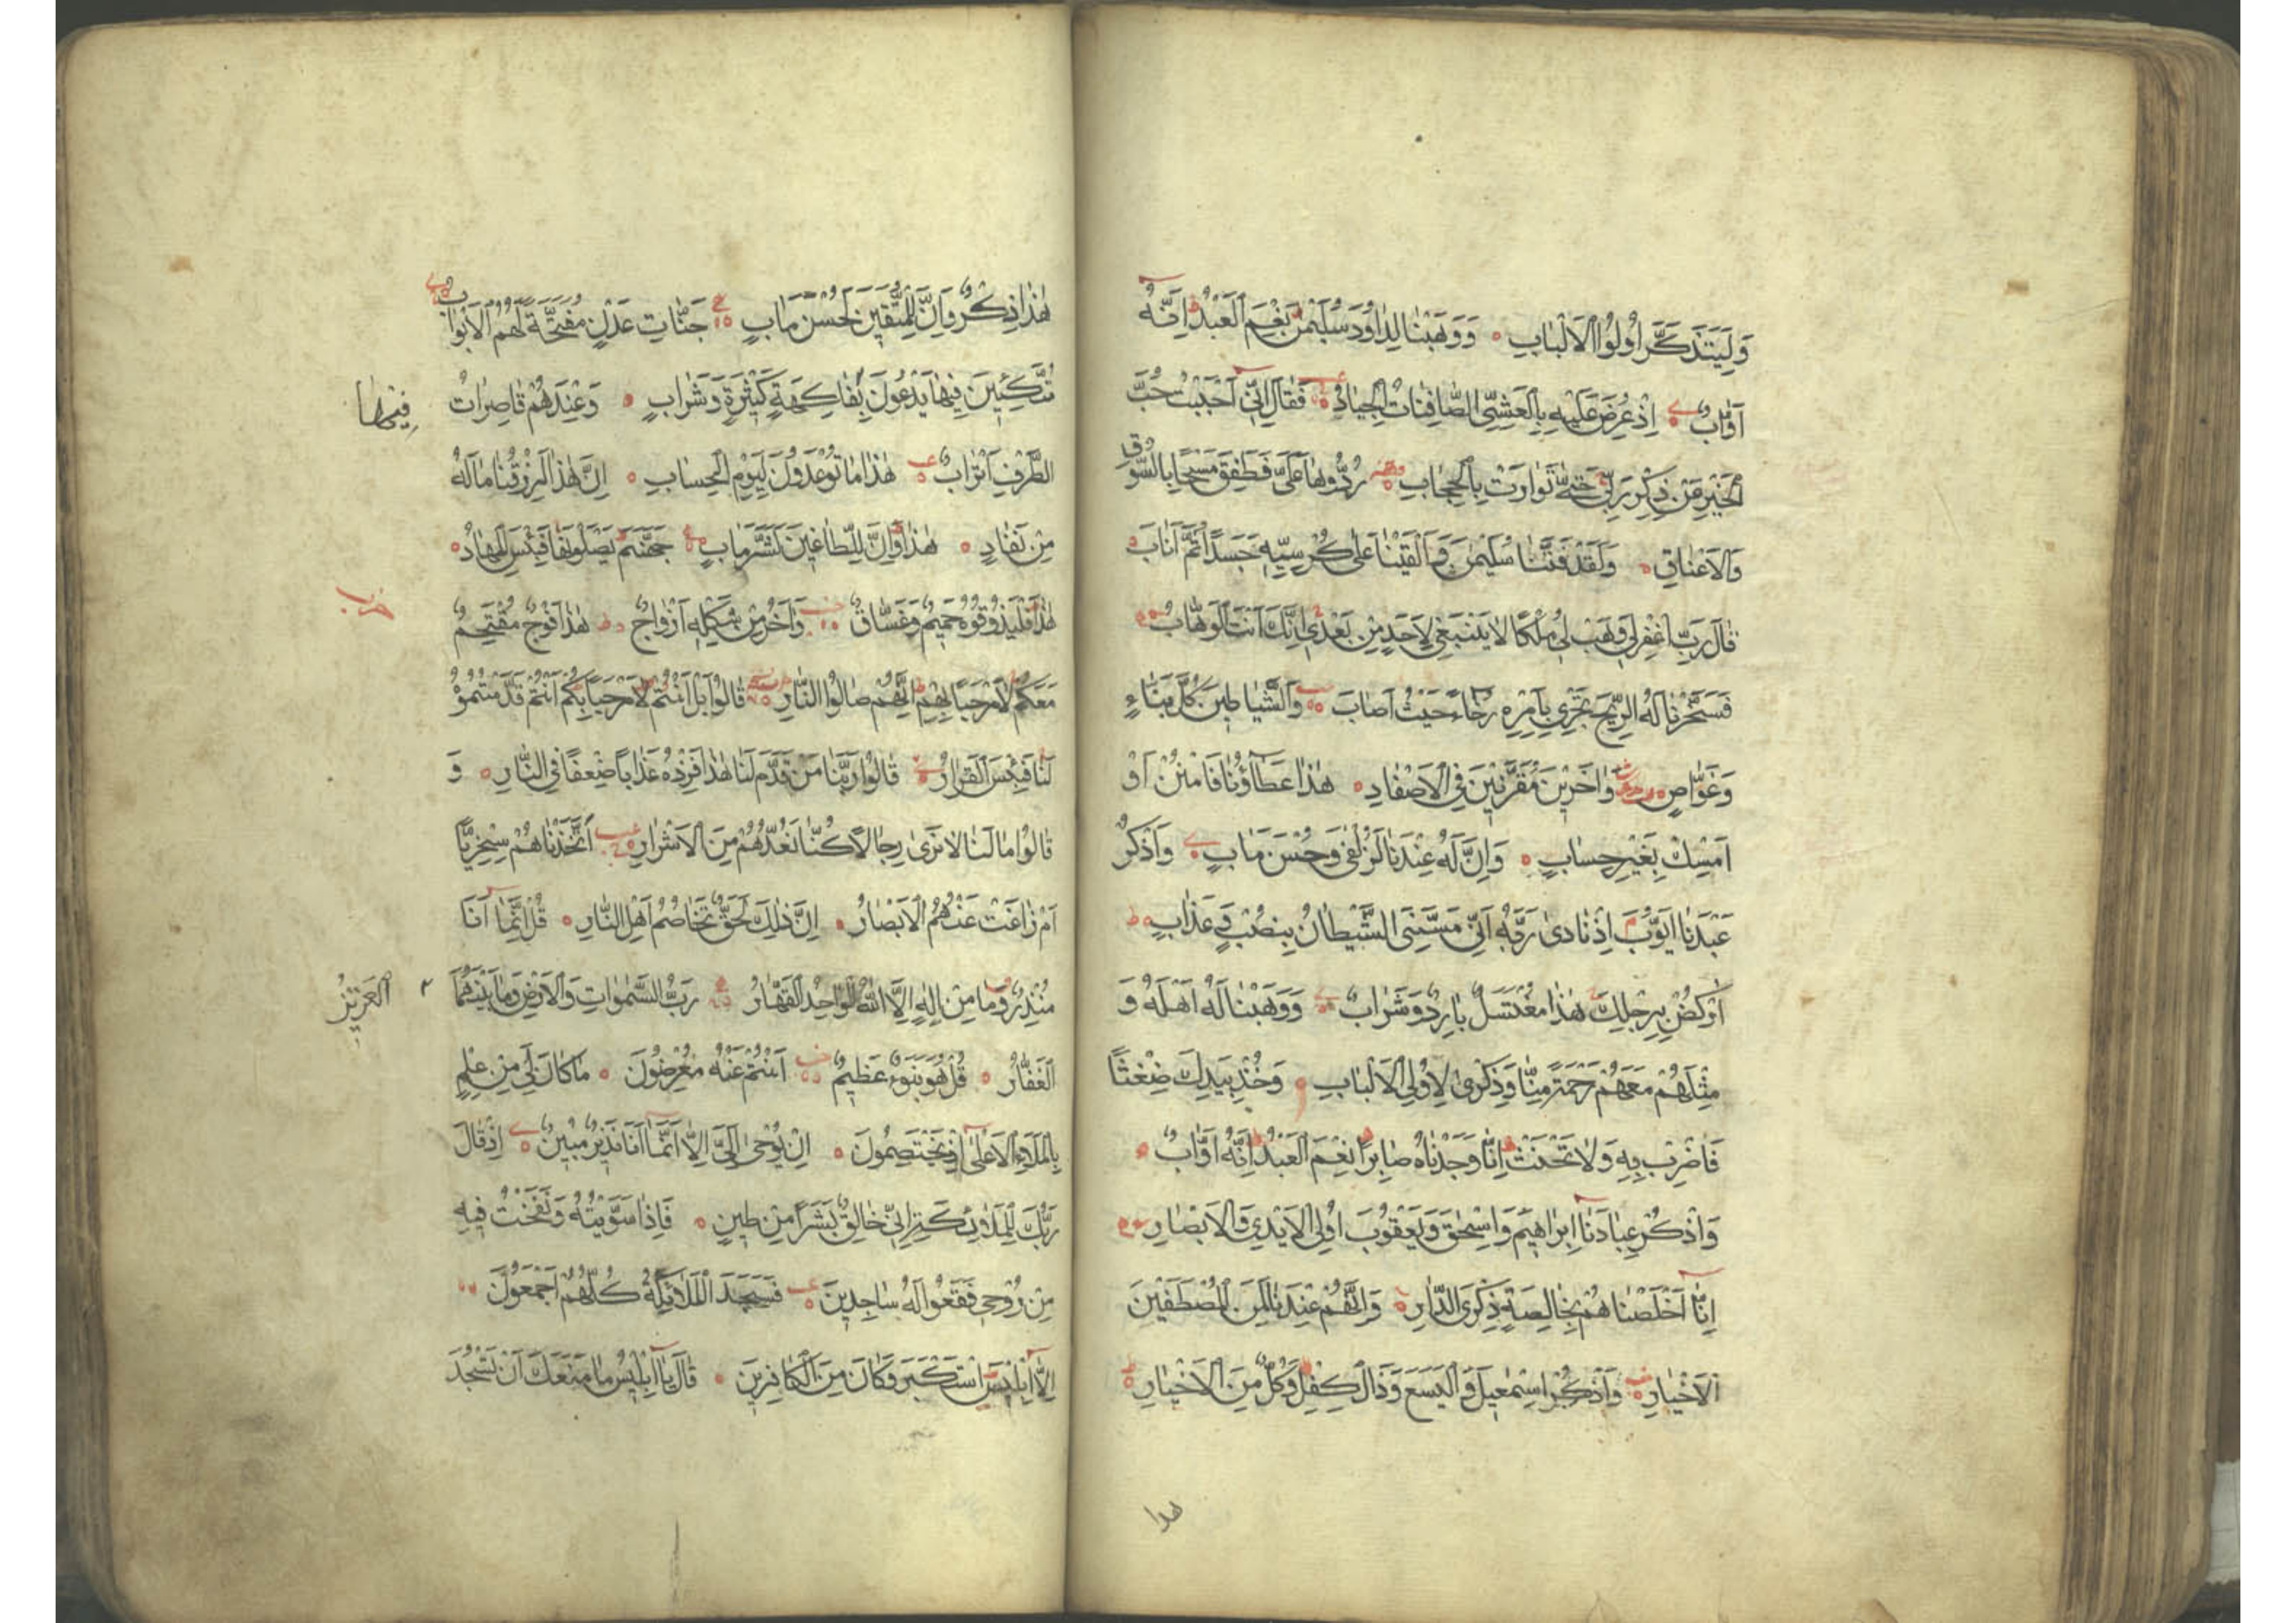 وَلِيَتَذَكَّرَ اُولُوا الْاَلْبَابِ وَوَهَبْنَا لِدَاوُدَ سُلَيْمٰنَ نِعْمَ الْعَبْدُ اِنَّهُ
اَوَّابٌ اِذْ عُرِضَ عَلَيْهِ بِالْعَشِيِّ الصَّافِنَاتُ الْجِيَادُ فَقَالَ اِنِّي اَحْبَبْتُ حُبَّ
الْخَيْرِ عَنْ ذِكْرِ رَبِّي حَتّٰى تَوَارَتْ بِالْحِجَابِ رُدُّوهَا عَلَيَّ فَطَفِقَ مَسْحًا بِالسُّوقِ
وَالْاَعْنَاقِ وَلَقَدْ فَتَنَّا سُلَيْمٰنَ وَاَلْقَيْنَا عَلٰى كُرْسِيِّهِ جَسَدًا ثُمَّ اَنَابَ
قَالَ رَبِّ اغْفِرْ لِي وَهَبْ لِي مُلْكًا لَا يَنْبَغِي لِاَحَدٍ مِنْ بَعْدِي اِنَّكَ اَنْتَ الْوَهَّابُ
فَسَخَّرْنَا لَهُ الرِّيحَ تَجْرِي بِاَمْرِهِ رُخَاءً حَيْثُ اَصَابَ وَالشَّيَاطِينَ كُلَّ بَنَّاءٍ
وَغَوَّاصٍ وَاٰخَرِينَ مُقَرَّنِينَ فِي الْاَصْفَادِ هٰذَا عَطَاؤُنَا فَامْنُنْ اَوْ
اَمْسِكْ بِغَيْرِ حِسَابٍ وَاِنَّ لَهُ عِنْدَنَا لَزُلْفٰى وَحُسْنَ مَاٰبٍ وَاذْكُرْ
عَبْدَنَا اَيُّوبَ اِذْ نَادٰى رَبَّهُ اَنِّي مَسَّنِيَ الشَّيْطَانُ بِنُصْبٍ وَعَذَابٍ
اُرْكُضْ بِرِجْلِكَ هٰذَا مُغْتَسَلٌ بَارِدٌ وَشَرَابٌ وَوَهَبْنَا لَهُ اَهْلَهُ وَ
مِثْلَهُمْ مَعَهُمْ رَحْمَةً مِنَّا وَذِكْرٰى لِاُولِي الْاَلْبَابِ وَخُذْ بِيَدِكَ ضِغْثًا
فَاضْرِبْ بِهِ وَلَا تَحْنَثْ اِنَّا وَجَدْنَاهُ صَابِرًا نِعْمَ الْعَبْدُ اِنَّهُ اَوَّابٌ
وَاذْكُرْ عِبَادَنَا اِبْرَاهِيمَ وَاِسْحٰقَ وَيَعْقُوبَ اُولِي الْاَيْدِي وَالْاَبْصَارِ
اِنَّا اَخْلَصْنَاهُمْ بِخَالِصَةٍ ذِكْرَى الدَّارِ وَاِنَّهُمْ عِنْدَنَا لَمِنَ الْمُصْطَفَيْنَ
الْاَخْيَارِ وَاذْكُرْ اِسْمٰعِيلَ وَالْيَسَعَ وَذَا الْكِفْلِ وَكُلٌّ مِنَ الْاَخْيَارِ
هذا
هٰذَا ذِكْرٌ وَاِنَّ لِلْمُتَّقِينَ لَحُسْنَ مَاٰبٍ جَنَّاتِ عَدْنٍ مُفَتَّحَةً لَهُمُ الْاَبْوَابُ
مُتَّكِئِينَ فِيهَا يَدْعُونَ بِفَاكِهَةٍ كَثِيرَةٍ وَشَرَابٍ وَعِنْدَهُمْ قَاصِرَاتُ
فيها
الطَّرْفِ اَتْرَابٌ هٰذَا مَا تُوعَدُونَ لِيَوْمِ الْحِسَابِ اِنَّ هٰذَا لَرِزْقُنَا مَا لَهُ
مِنْ نَفَادٍ هٰذَا وَاِنَّ لِلطَّاغِينَ لَشَرَّ مَاٰبٍ جَهَنَّمَ يَصْلَوْنَهَا فَبِئْسَ الْمِهَادُ
هٰذَا فَلْيَذُوقُوهُ حَمِيمٌ وَغَسَّاقٌ وَاٰخَرُ مِنْ شَكْلِهِ اَزْوَاجٌ هٰذَا فَوْجٌ مُقْتَحِمٌ
حزب
مَعَكُمْ لَا مَرْحَبًا بِهِمْ اِنَّهُمْ صَالُوا النَّارِ قَالُوا بَلْ اَنْتُمْ لَا مَرْحَبًا بِكُمْ اَنْتُمْ قَدَّمْتُمُوهُ
لَنَا فَبِئْسَ الْقَرَارُ قَالُوا رَبَّنَا مَنْ قَدَّمَ لَنَا هٰذَا فَزِدْهُ عَذَابًا ضِعْفًا فِي النَّارِ وَ
قَالُوا مَا لَنَا لَا نَرٰى رِجَالًا كُنَّا نَعُدُّهُمْ مِنَ الْاَشْرَارِ اَتَّخَذْنَاهُمْ سِخْرِيًّا
اَمْ زَاغَتْ عَنْهُمُ الْاَبْصَارُ اِنَّ ذٰلِكَ لَحَقٌّ تَخَاصُمُ اَهْلِ النَّارِ قُلْ اِنَّمَا اَنَا
مُنْذِرٌ وَمَا مِنْ اِلٰهٍ اِلَّا اللّٰهُ الْوَاحِدُ الْقَهَّارُ رَبُّ السَّمٰوَاتِ وَالْاَرْضِ وَمَا بَيْنَهُمَا
الْعَزِيزُ
الْغَفَّارُ قُلْ هُوَ نَبَؤٌ عَظِيمٌ اَنْتُمْ عَنْهُ مُعْرِضُونَ مَا كَانَ لِيَ مِنْ عِلْمٍ
بِالْمَلَاِ الْاَعْلٰى اِذْ يَخْتَصِمُونَ اِنْ يُوحٰى اِلَيَّ اِلَّا اَنَّمَا اَنَا نَذِيرٌ مُبِينٌ اِذْ قَالَ
رَبُّكَ لِلْمَلٰئِكَةِ اِنِّي خَالِقٌ بَشَرًا مِنْ طِينٍ فَاِذَا سَوَّيْتُهُ وَنَفَخْتُ فِيهِ
مِنْ رُوحِي فَقَعُوا لَهُ سَاجِدِينَ فَسَجَدَ الْمَلَائِكَةُ كُلُّهُمْ اَجْمَعُونَ
اِلَّا اِبْلِيسَ اسْتَكْبَرَ وَكَانَ مِنَ الْكَافِرِينَ قَالَ يَا اِبْلِيسُ مَا مَنَعَكَ اَنْ تَسْجُدَ